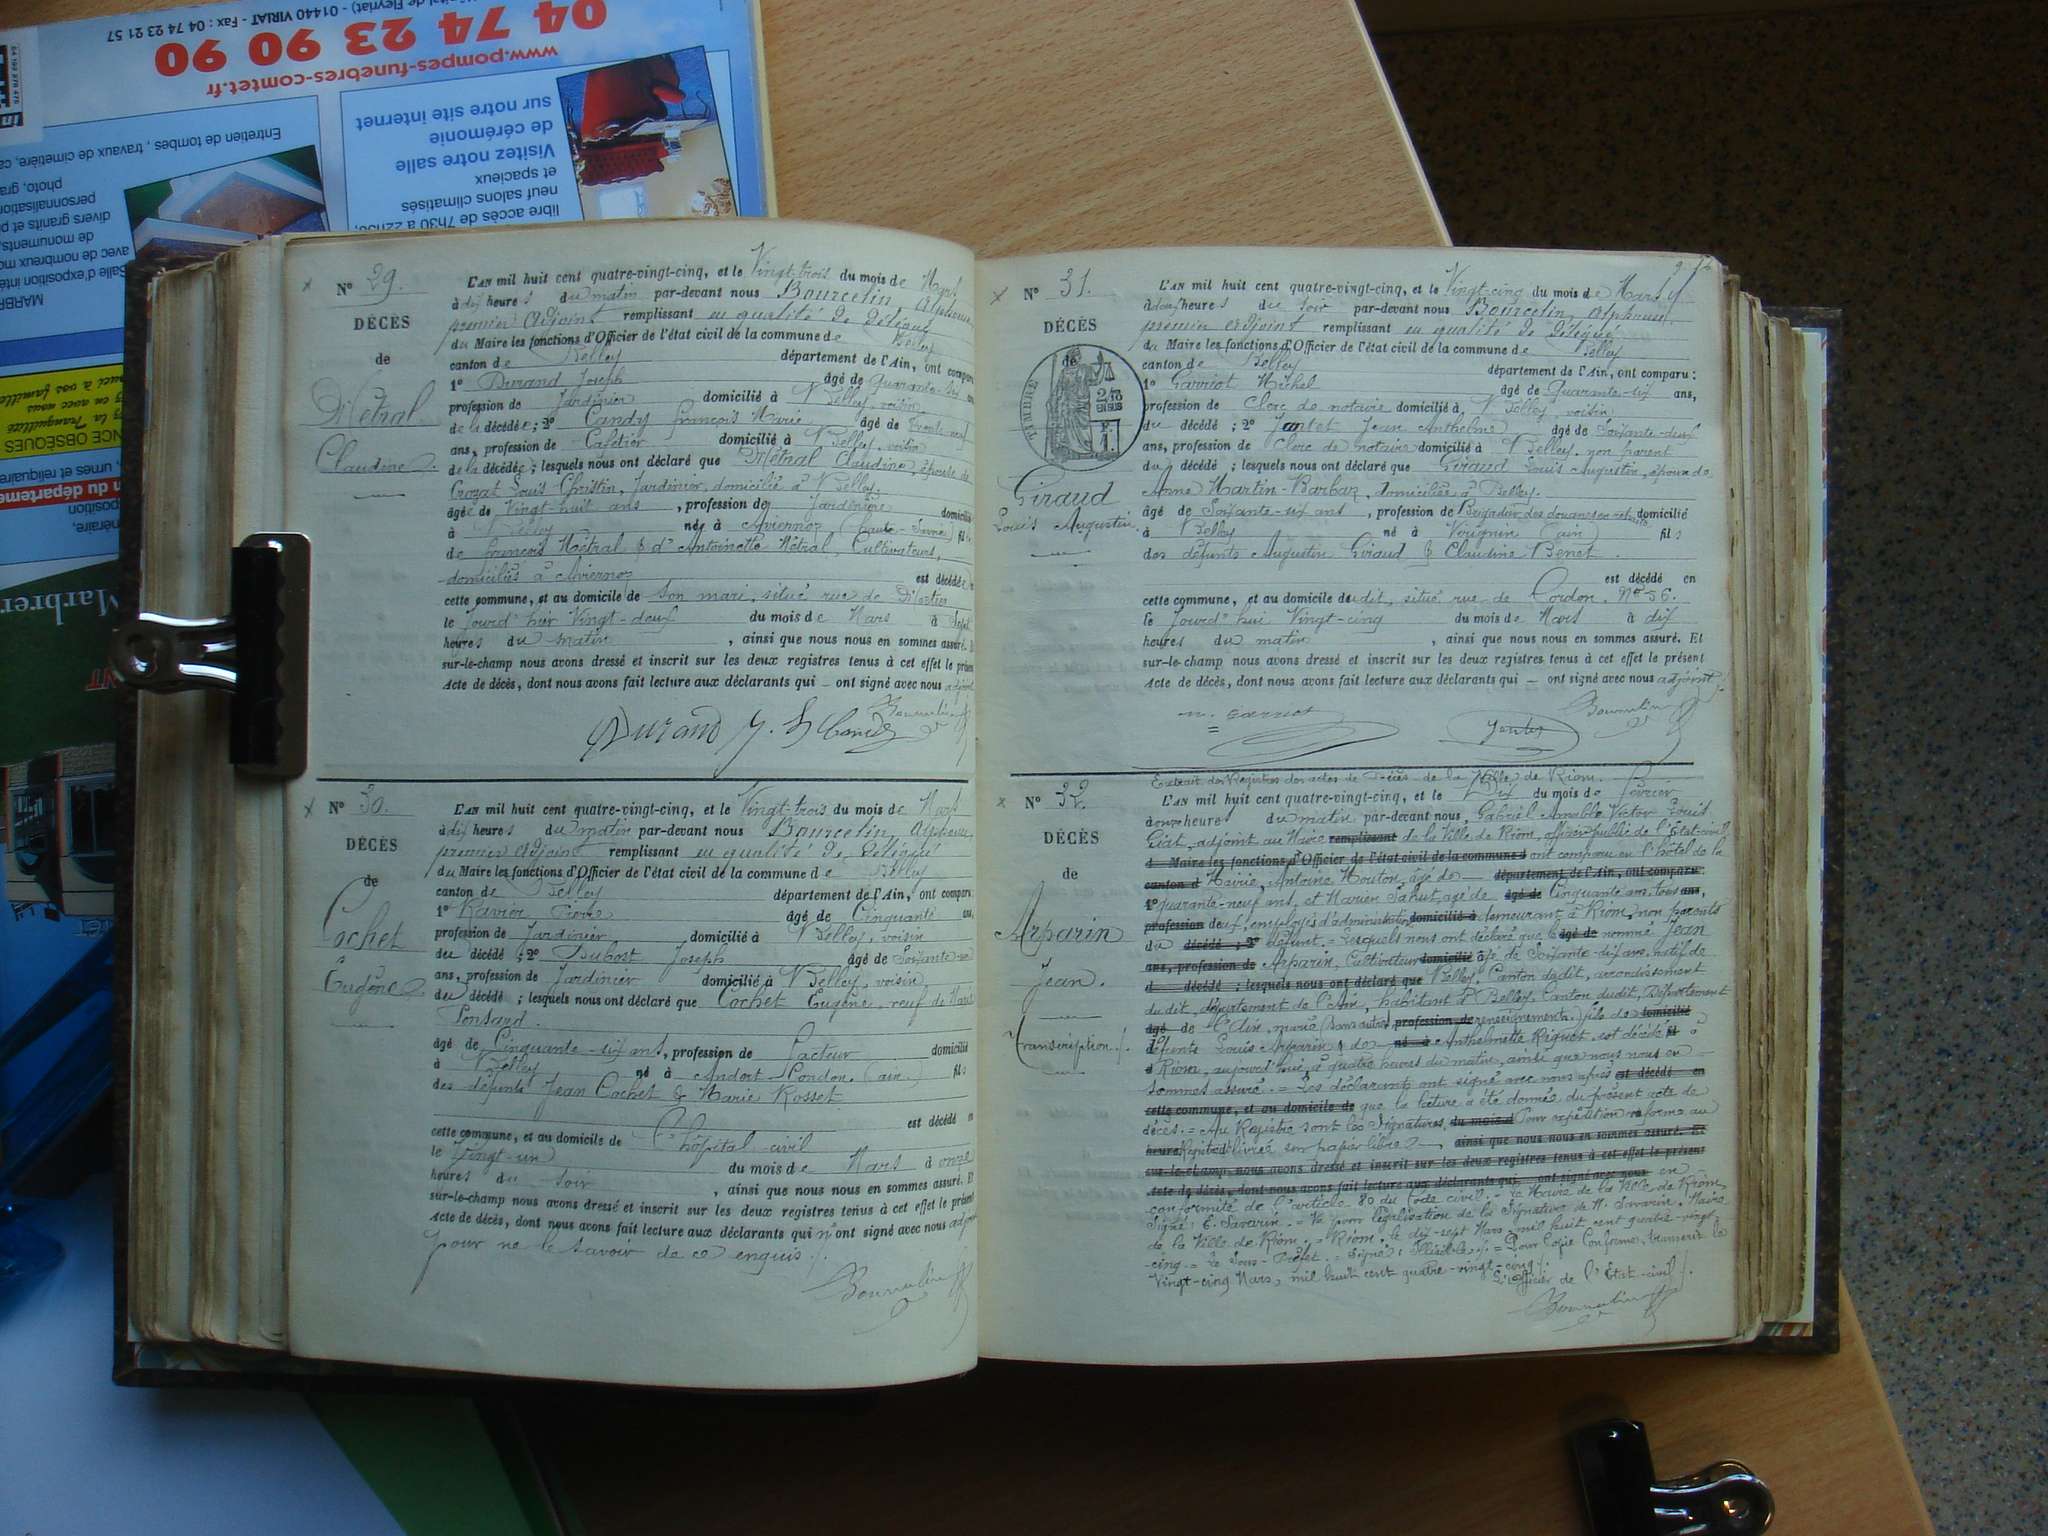 04 74 23 90 90
www.pompes-funebres-comtet.fr
01440 VIRIAT - Fax : 04 74 23 21 57
Entretien de tombes, travaux de cimetière,
Visitez notre salle
de cérémonie
sur notre site internet
neuf salons climatisés
et spacieux
N° 29.
DÉCÈS
de
Métral
Claudine
L'AN mil huit cent quatre-vingt-cinq, et le Vingt-trois du mois de Mars
à dix heures du matin par-devant nous Bourcelin, Alphonse
premier adjoint remplissant en qualité de délégué
du Maire les fonctions d'Officier de l'état civil de la commune de Belley
canton de Belley département de l'Ain, ont comparu
1° Durand Joseph âgé de Quarante-six ans
profession de Jardinier domicilié à Belley, voisin
de la décédée ; 2° Candy François Marie âgé de trente-neuf
ans, profession de Cafetier domicilié à Belley, voisin
de la décédée ; lesquels nous ont déclaré que Métral Claudine, épouse de
Crozat Louis Christin, Jardinier, domicilié à Belley,
âgée de Vingt-huit ans, profession de Jardinière domicilié
à Belley née à Aviernoz (Haute-Savoie) fille
de François Métral & d'Antoinette Métral, Cultivateurs,
domiciliés à Aviernoz est décédée
cette commune, et au domicile de son mari, situé rue de
le Jourd'hier Vingt-deux du mois de Mars à Sept
heures du matin, ainsi que nous nous en sommes assuré. Et
sur-le-champ nous avons dressé et inscrit sur les deux registres tenus à cet effet le présent
acte de décès, dont nous avons fait lecture aux déclarants qui – ont signé avec nous adjoint
Durand J.
N° 30.
DÉCÈS
de
Cochet
Eugène
L'AN mil huit cent quatre-vingt-cinq, et le Vingt-trois du mois de Mars
à dix heures du matin par-devant nous Bourcelin, Alphonse
premier adjoint remplissant en qualité de délégué
du Maire les fonctions d'Officier de l'état civil de la commune de Belley
canton de Belley département de l'Ain, ont comparu
1° Ravier Pierre âgé de Cinquante ans,
profession de Jardinier domicilié à Belley, voisin
du décédé ; 2° Dubost Joseph âgé de Soixante-un
ans, profession de Jardinier domicilié à Belley, voisin
du décédé ; lesquels nous ont déclaré que Cochet Eugène, veuf de Marie
Ponsard.
âgé de Cinquante-six ans, profession de Facteur domicilié
à Belley né à Andert-Condon (ain) fils
des défunts Jean Cochet & Marie Rosset
est décédé en
cette commune, et au domicile de l'hôpital civil
le Vingt-un du mois de Mars à onze
heures du soir, ainsi que nous nous en sommes assuré. Et
sur-le-champ nous avons dressé et inscrit sur les deux registres tenus à cet effet le présent
acte de décès, dont nous avons fait lecture aux déclarants qui n'ont signé avec nous adjoint
pour ne le savoir de ce enquis.
N° 31.
DÉCÈS
de
TIMBRE
Giraud
Louis Augustin
L'AN mil huit cent quatre-vingt-cinq, et le Vingt-cinq du mois de Mars
à deux heures du soir par-devant nous Bourcelin, Alphonse
premier adjoint remplissant en qualité de délégué
du Maire les fonctions d'Officier de l'état civil de la commune de Belley
canton de Belley département de l'Ain, ont comparu :
1° Garriot Michel âgé de Quarante-six ans,
profession de Clerc de notaire domicilié à Belley, voisin
du décédé ; 2° Jantet Jean Anthelme âgé de Soixante-deux
ans, profession de Clerc de notaire domicilié à Belley, non parent
du décédé ; lesquels nous ont déclaré que Giraud Louis Augustin, époux de
Anne Martin-Barbaz, domiciliée à Belley.
âgé de Soixante-six ans, profession de Brigadier des douanes en retraite domicilié
à Belley né à Virignin (ain) fils
des défunts Augustin Giraud & Claudine Benet.
est décédé en
cette commune, et au domicile dudit, situé rue de Cordon, N° 56.
le Jourd'hui Vingt-cinq du mois de Mars à dix
heures du matin, ainsi que nous nous en sommes assuré. Et
sur-le-champ nous avons dressé et inscrit sur les deux registres tenus à cet effet le présent
acte de décès, dont nous avons fait lecture aux déclarants qui – ont signé avec nous adjoint
M. Garriot
N° 32.
DÉCÈS
de
Arparin
Jean.
Transcription
Extrait des Registres des actes de Décès de la Ville de Riom.
L'AN mil huit cent quatre-vingt-cinq, et le Dix du mois de février
à onze heures du matin par-devant nous, Gabriel Amable Victor Louis
Giat, adjoint au Maire remplissant de la Ville de Riom, officier public de l'Etat-civil
d Maire les fonctions d'Officier de l'état civil de la commune d ont comparu en l'hôtel de la
canton d Mairie, Antoine Mouton, âgé de département de l'Ain, ont comparu
1° quarante-neuf ans, et Marien Sahut, âgé de âgé de Cinquante ans, tous ans,
profession deux employés d'administration, domicilié à demeurant à Riom, non parents
du décédé ; 2° défunt. = Lesquels nous ont déclaré que le âgé de nommé Jean
ans, profession de Arparin, Cultivateur domicilié âgé de Soixante-dix ans, natif de
d décédé ; lesquels nous ont déclaré que Belley, Canton dudit, arrondissement
dudit, département de l'Ain, habitant à Belley, Canton dudit, Département
âgé de l'Ain, marié (sans autres profession de renseignements.) fils de domicilié
défunts Louis Arparin & de né à Anthelmette Riquet, est décédé fil à
à Riom, aujourd'hui, à quatre heures du matin, ainsi que nous nous en
sommes assuré. = Les déclarants ont signé avec nous après est décédé en
cette commune, et au domicile de que la lecture a été donnée du présent acte de
décès. = Au Registre sont les Signatures. du mois d Pour expédition conforme au
heure Registre délivrée sur papier libre ainsi que nous nous en sommes assuré. Et
sur-le-champ nous avons dressé et inscrit sur les deux registres tenus à cet effet le présent
acte de décès, dont nous avons fait lecture aux déclarants qui ont signé avec nous en
conformité de l'article 80 du Code civil. = Le Maire de la Ville de Riom,
Signé : E. Savarin. = Vu pour légalisation de la Signature de M. Savarin, Maire
de la Ville de Riom. = Riom, le dix-sept Mars, mil huit cent quatre-vingt-
-cinq. = Le Sous-Préfet. = Signé : Illisible. = Pour Copie Conforme, transcrit le
Vingt-cinq Mars, mil huit cent quatre-vingt-cinq.
L'Officier de l'Etat-civil